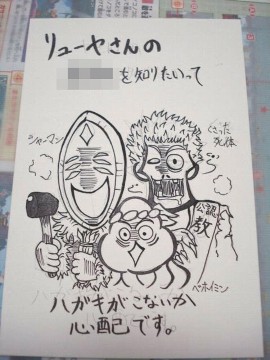 リューヤさんの
を知りたいって
シャーマン
くさった
死体
公認
教
ベホイミン
ハガキがこないか
心配です。